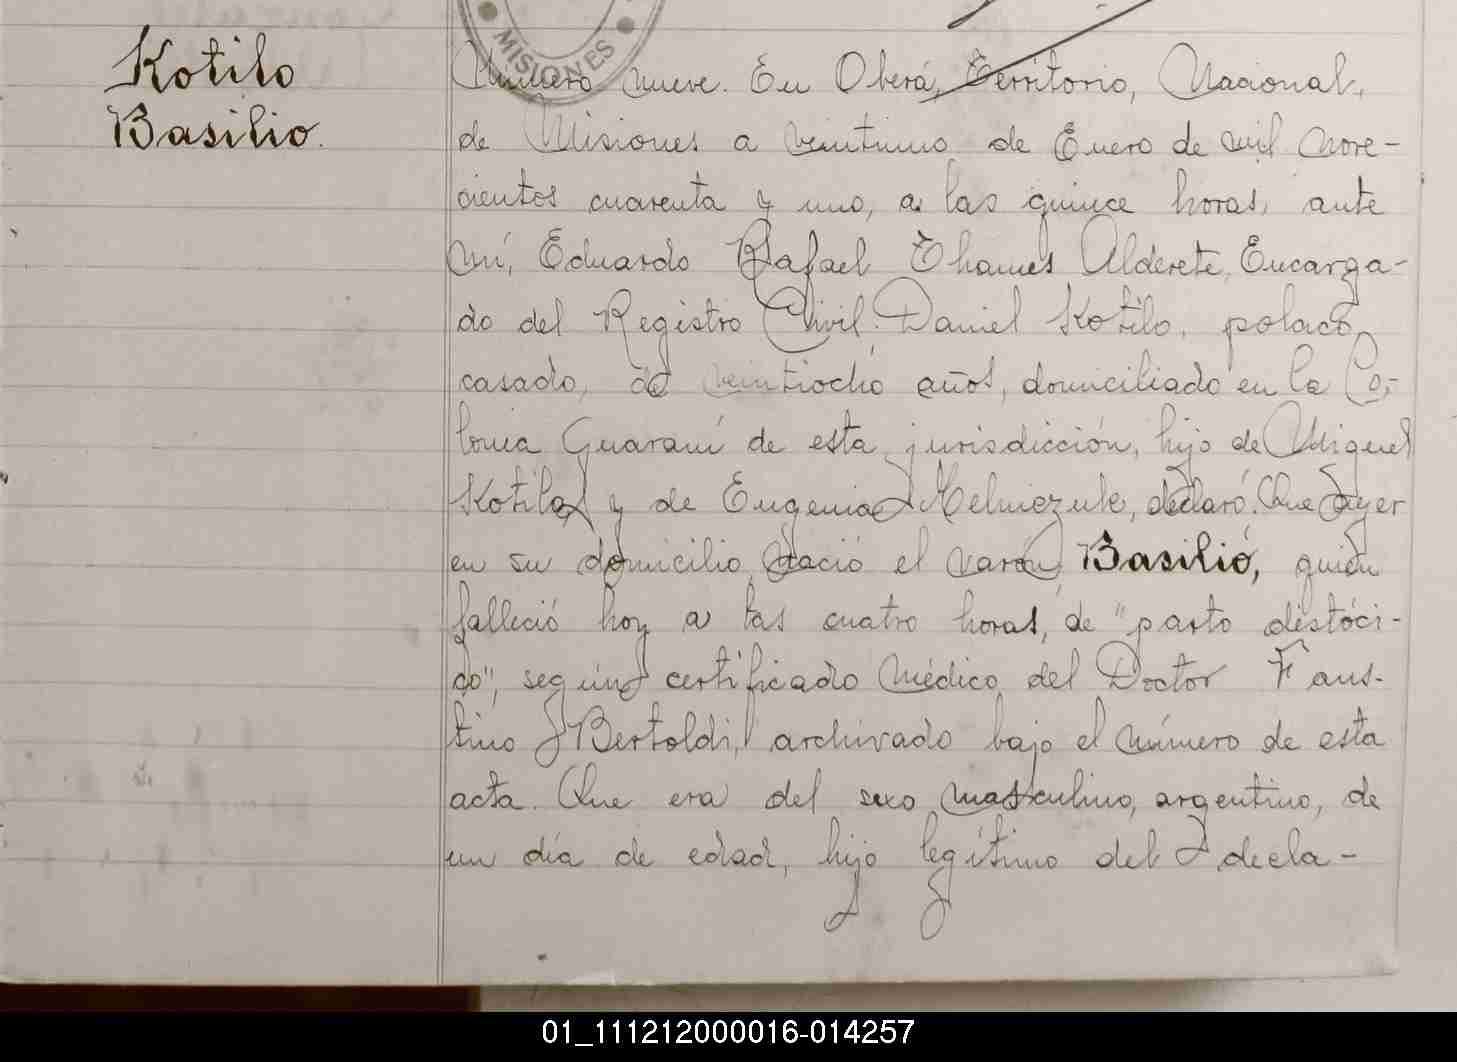 Kotilo
Basilio.
MISIONES
Número nueve. En Oberá, Territorio, Nacional,
de Misiones a veintiuno de Enero de mil nove-
cientos cuarenta y uno, a las quince horas, ante
mí, Eduardo Rafael Thames Alderete, Encarga-
do del Registro Civil. Daniel Kotilo, polaco,
casado, de veintiocho años, domiciliado en la Co-
lonia Guaraní de esta jurisdicción, hijo de Miguel
Kotilo y de Eugenia Melniezuk, declaró: Que ayer
en su domicilio, nació el varón Basilio, quién
falleció hoy a las cuatro horas, de "parto distóci-
co", según certificado médico del Doctor Faus-
tino J Bertoldi, archivado bajo el número de esta
acta. Que era del sexo masculino, argentino, de
un día de edad, hijo legítimo del decla-
01_111212000016-014257